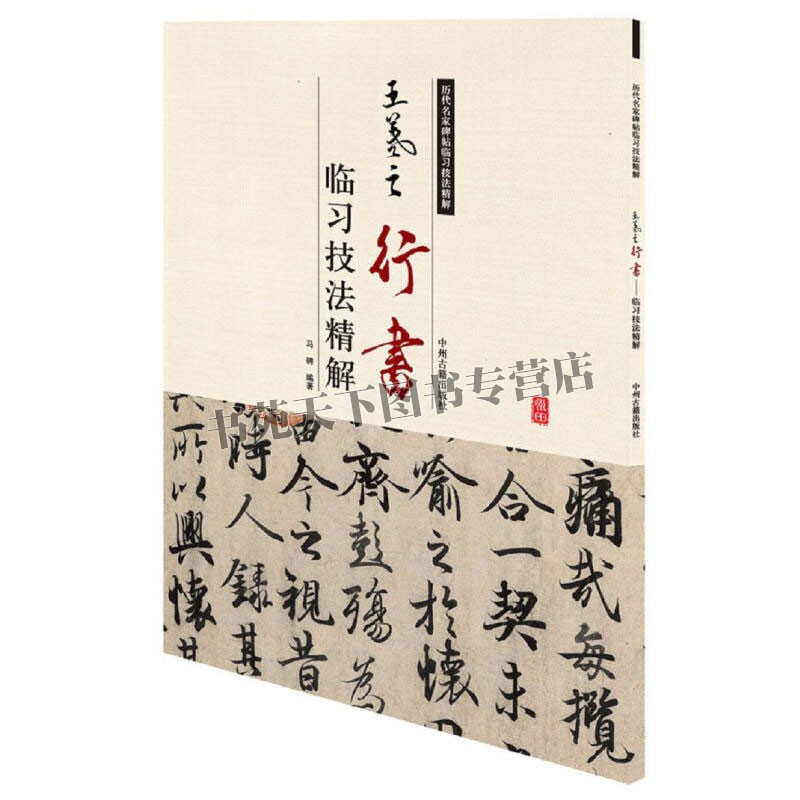 历代名家碑帖临习技法精解
王羲之行書
临习技法精解
马骋 编著
中州古籍出版社
痛哉每攬
合一契未
喻之於懷
齊彭殤為
由今之視昔
時人錄其
所以興懷其
历代名家碑帖临习技法精解
王羲之行書——临习技法精解
中州古籍出版社
书苑天下图书专营店